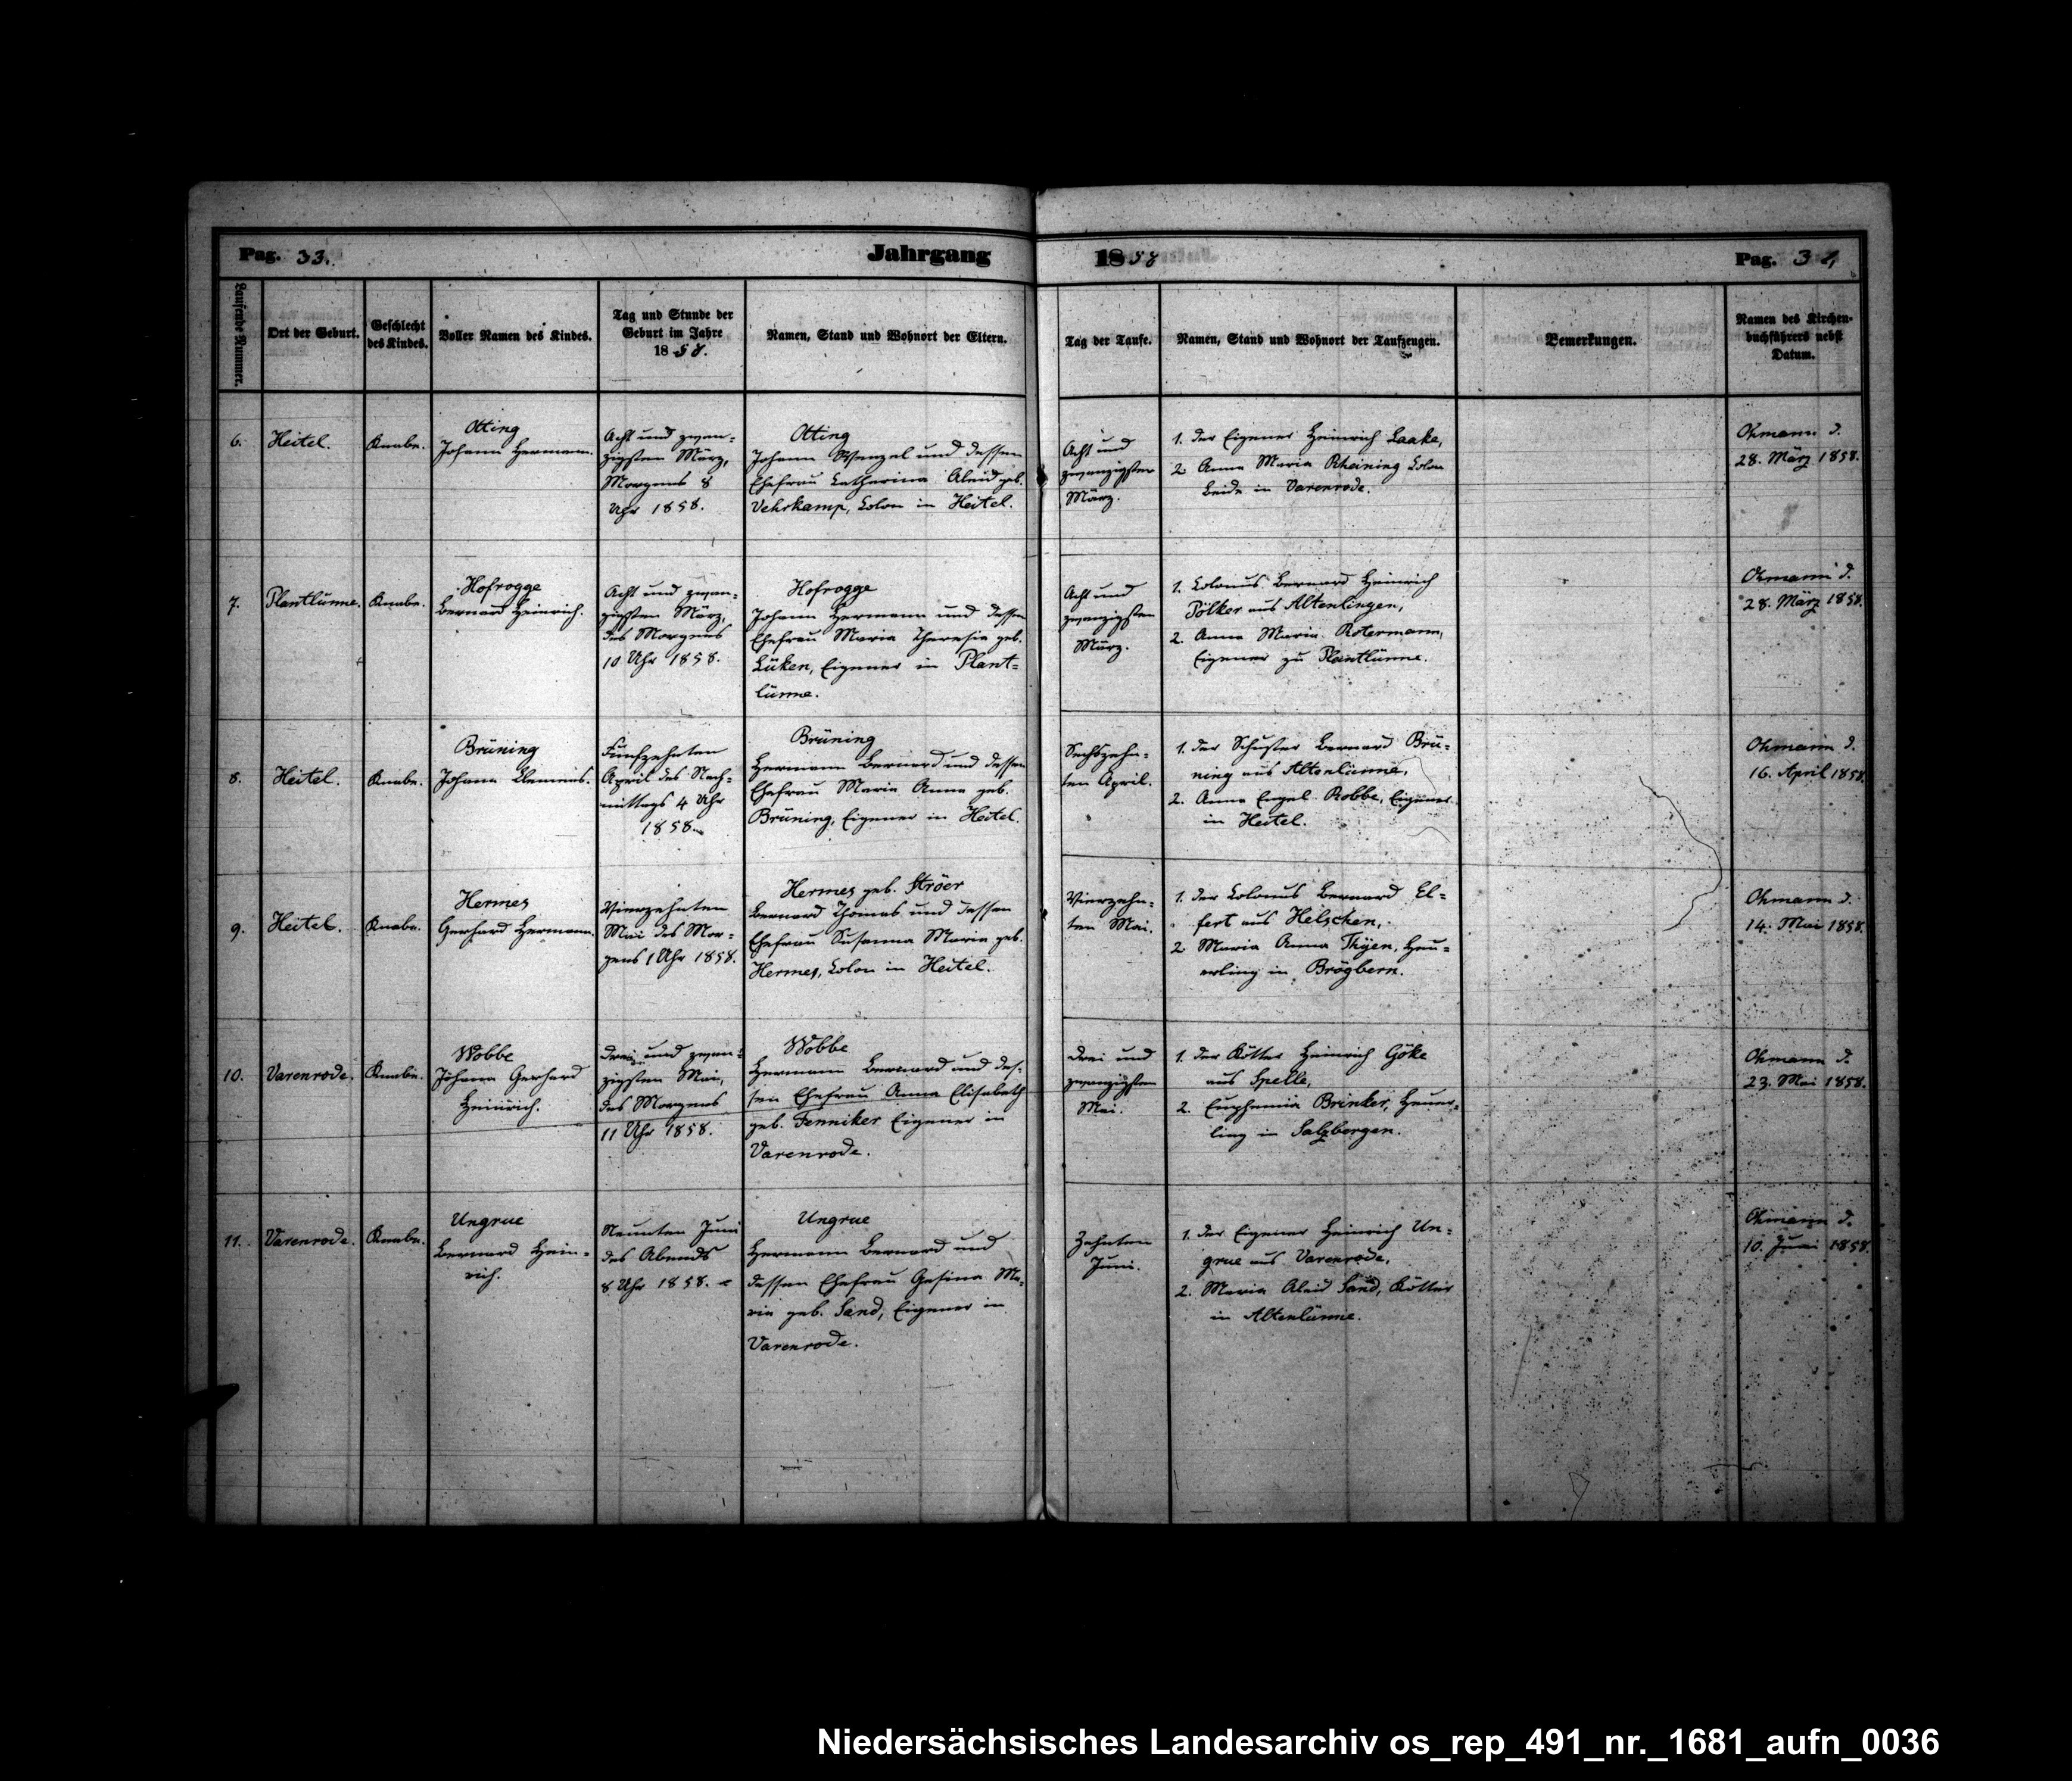 Pag. 33.
Jahrgang
1858
Pag. 34
Laufende Nummer.
Ort der Geburt.
Geschlecht
des Kindes.
Voller Namen des Kindes.
Tag und Stunde der
Geburt im Jahre
1858.
Namen, Stand und Wohnort der Eltern.
Tag der Taufe.
Namen, Stand und Wohnort der Taufzeugen.
Bemerkungen.
Namen des Kirchen-
buchführers nebst
Datum.
6.
Heitel.
Knabe.
Otting
Johann Hermann.
Acht und zwan-
zigsten März,
Morgens 8
Uhr 1858.
Otting
Johann Wenzel und dessen
Ehefrau Catharina Aleid geb.
Vehrkamp, Colon in Heitel.
Acht und
zwanzigsten
März.
1. der Eigener Heinrich Laake,
2. Anna Maria Rheining Colon
beide in Varenrode.
Ohmann d.
28. März 1858.
7.
Plantlünne.
Knabe.
Hofrogge
Bernard Heinrich.
Acht und zwan-
zigsten März,
des Morgens
10 Uhr 1858.
Hofrogge
Johann Hermann und dessen
Ehefrau Maria Theresia geb.
Lüken, Eigener in Plant-
lünne.
Acht und
zwanzigsten
März.
1. Colonus Bernard Heinrich
Pölker aus Altenlingen,
2. Anna Maria Rotermann,
Eigener zu Plantlünne.
Ohmann d.
28. März 1858.
8.
Heitel.
Knabe.
Brüning
Johann Clemens.
Fünfzehnten
April des Nach-
mittags 4 Uhr
1858.
Brüning
Hermann Bernard und dessen
Ehefrau Maria Anna geb.
Brüning, Eigener in Heitel.
Sechszehn-
ten April.
1. der Schuster Bernard Brü-
ning aus Altenlünne,
2. Anna Engel Robbe, Eigener
in Heitel.
Ohmann d.
16. April 1858.
9.
Heitel.
Knabe.
Hermes
Gerhard Hermann.
Vierzehnten
Mai des Mor-
gens 1 Uhr 1858.
Hermes geb. Ströer
Bernard Thomas und dessen
Ehefrau Susanna Maria geb.
Hermes, Colon in Heitel.
Vierzehn-
ten Mai.
1. der Colonus Bernard El-
fert aus Helschen,
2. Maria Anna Thÿen, Heu-
erling in Brögbern.
Ohmann d.
14. Mai 1858.
10.
Varenrode.
Knabe.
Wobbe
Johann Gerhard
Heinrich.
Drei und zwan-
zigsten Mai,
des Morgens
11 Uhr 1858.
Wobbe
Hermann Bernard und des-
sen Ehefrau Anna Elisabeth
geb. Fenniker Eigener in
Varenrode.
Drei und
zwanzigsten
Mai.
1. der Kötter Heinrich Göke
aus Spelle,
2. Euphemia Brinker, Heuer-
ling in Salzbergen.
Ohmann d.
23. Mai 1858.
11.
Varenrode.
Knabe.
Ungrue
Bernard Hein-
rich.
Neunten Juni
des Abends
8 Uhr 1858.
Ungrue
Hermann Bernard und
dessen Ehefrau Gesina Ma-
ria geb. Sand, Eigener in
Varenrode.
Zehnten
Juni.
1. der Eigener Heinrich Un-
grue aus Varenrode,
2. Maria Aleid Sand, Kötter
in Altenlünne.
Ohmann d.
10. Juni 1858.
Niedersächsisches Landesarchiv os_rep_491_nr._1681_aufn_0036